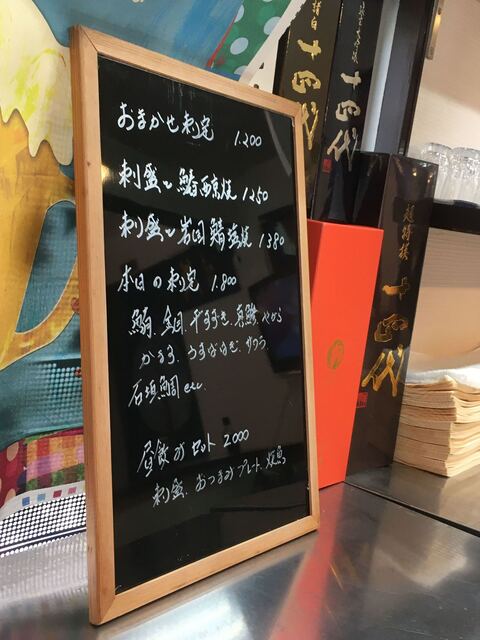 おまかせ刺定 1.200
刺盛と鰆西京焼 1250
刺盛と岩国鯖塩焼 1380
本日の刺定 1.800
鰤、金目、干すすき、真鯵、やがら
かます、うすばはぎ、サワラ
石垣鯛 etc
昼飲みセット 2000
刺盛、おつまみプレート、焼鳥
諸白
十四代
十四代
超特撰
十四代